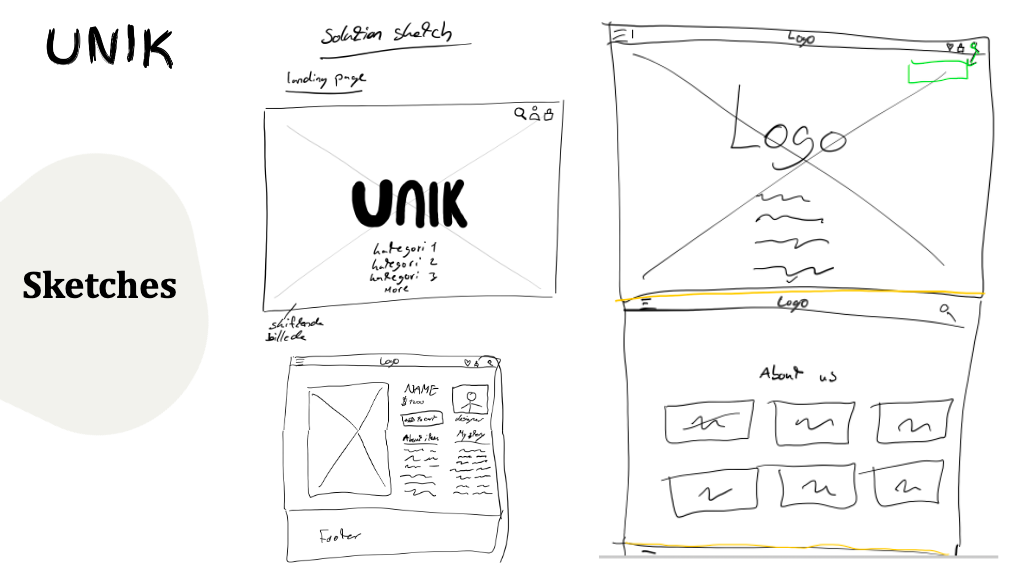 UNIK
Sketches
Solution sketch
landing page
UNIK
kategori 1
kategori 2
kategori 3
More
skiftende
billede
Logo
NAME
ADD TO CART
designer
About item
Footer
Logo
Logo
Logo
About us